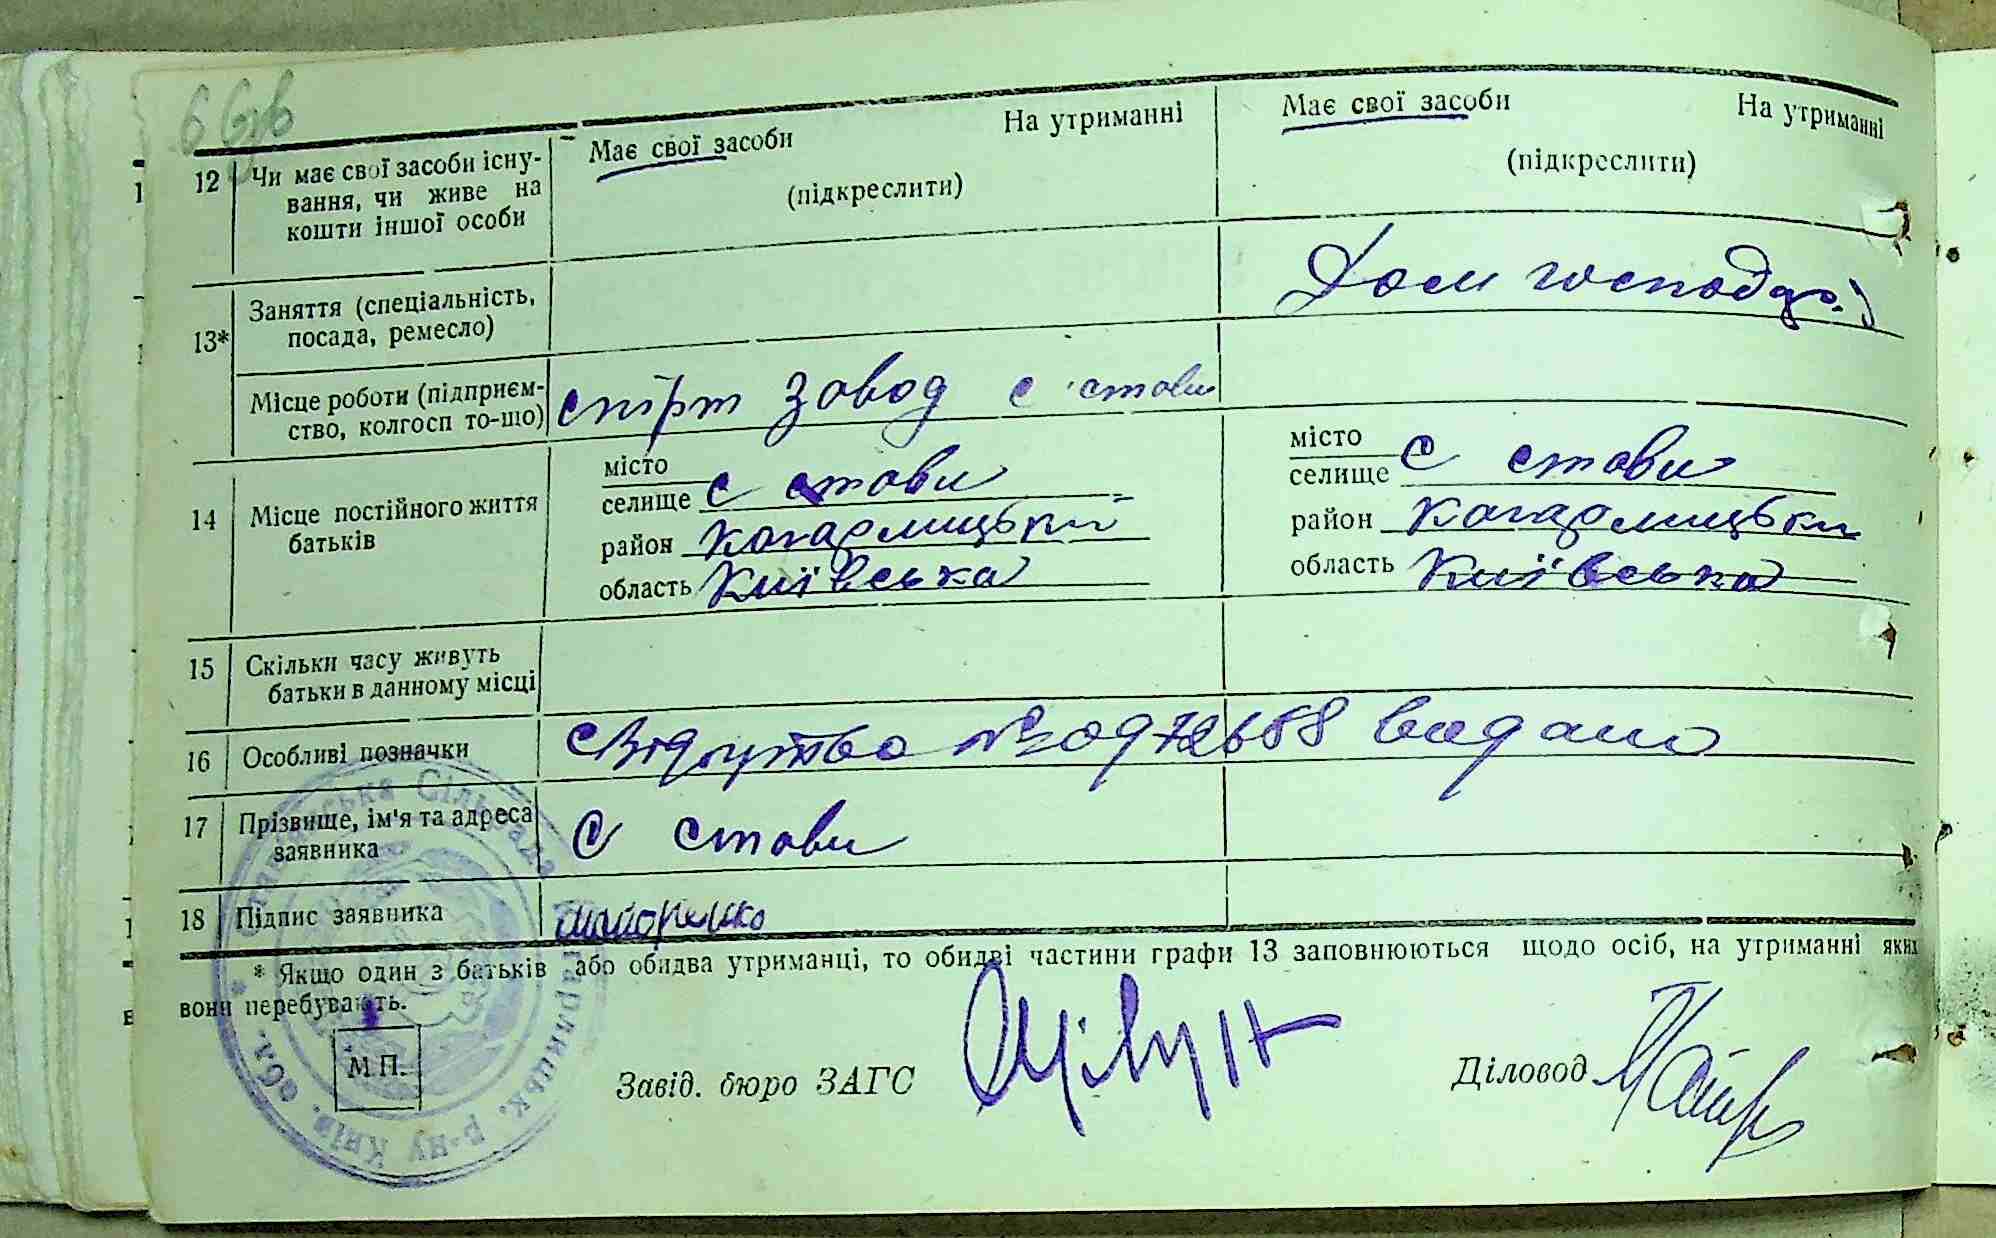 Має свої засоби На утриманні Має свої засоби На утриманні
12 Чи має свої засоби існу-
вання, чи живе на
кошти іншої особи
(підкреслити) (підкреслити)
13* Заняття (спеціальність,
посада, ремесло)
Дом господар.
Місце роботи (підприєм-
ство, колгосп то-що)
спірт завод с стави
14 Місце постійного життя
батьків
місто
селище с стави
район Кагарлицьки
область Київська
місто
селище с стави
район Кагарлицьки
область Київська
15 Скільки часу живуть
батьки в данному місці
16 Особливі позначки видано
17 Прізвище, ім'я та адреса
заявника
с стави
18 Підпис заявника
* Якщо один з батьків або обидва утриманці, то обидві частини графи 13 заповнюються щодо осіб, на утриманні яких
вони перебувають.
М.П.
Завід. бюро ЗАГС
Діловод
Сільрада Кагарлицьк. р-ну Київ. обл.